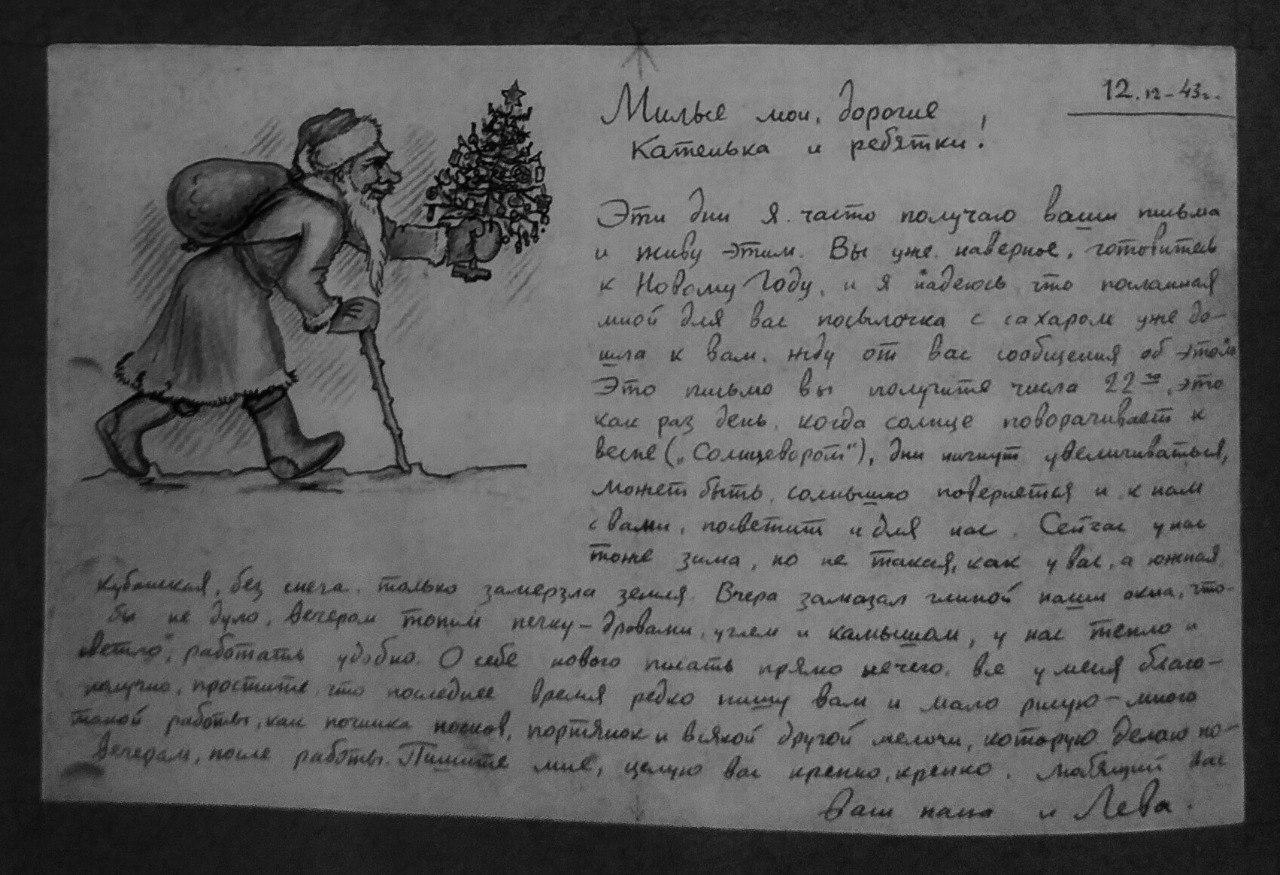 12.12-43г.
Милые мои, дорогие,
Катенька и ребятки!
Эти дни я часто получаю ваши письма
и живу этим. Вы уже наверное, готовитесь
к Новому Году, и я надеюсь что посланная
мной для вас посылочка с сахаром уже до-
шла к вам. жду от вас сообщения об этом
Это письмо вы получите числа 22го, это
как раз день, когда солнце поворачивает к
весне („Солнцеворот“), дни начнут увеличиваться,
может быть, солнышко повернется и к нам
с вами, посветит и для нас. Сейчас у нас
тоже зима, но не такая, как у вас, а южная
кубанская, без снега. только замерзла земля. Вчера замазал глиной наши окна, что-
бы не дуло, вечерам топим печку-дровами, углем и камышом, у нас тепло и
светло, работать удобно. О себе нового писать прямо нечего. все у меня благо-
получно, простите, что последнее время редко пишу вам и мало рисую-много
такой работы, как починка носков, портянок и всякой другой мелочи, которую делаю по-
вечерам, после работы. Пишите мне, целую вас крепко, крепко. Любящий вас
Ваш папа и Лева.